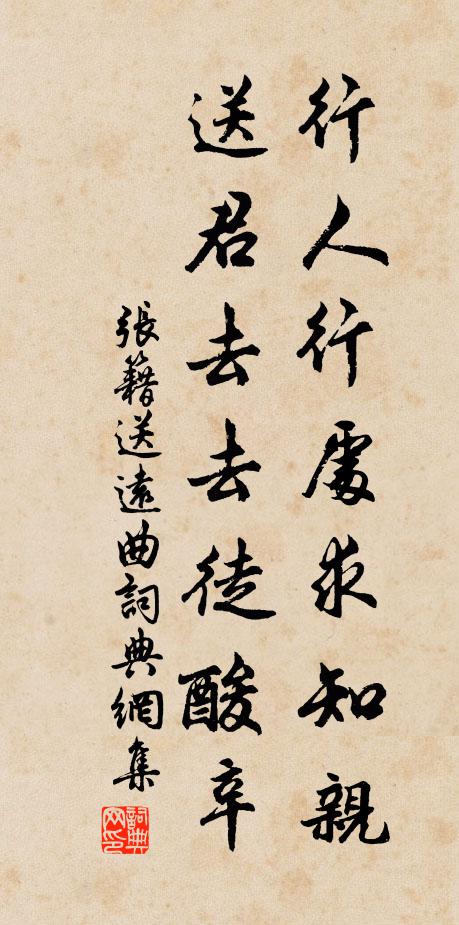 行人行處求知親
送君去去徒酸辛
張籍送遠曲詞典網集
詞典网印